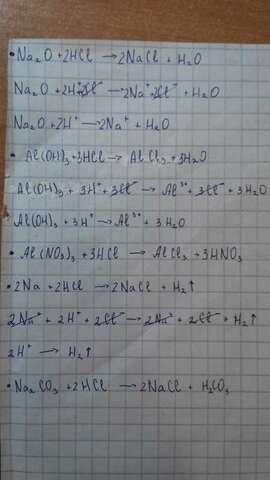 • Na₂O + 2HCl → 2NaCl + H₂O
Na₂O + 2H⁺ + 2Cl⁻ → 2Na⁺ + 2Cl⁻ + H₂O
Na₂O + 2H⁺ → 2Na⁺ + H₂O
• Al(OH)₃ + 3HCl → AlCl₃ + 3H₂O
Al(OH)₃ + 3H⁺ + 3Cl⁻ → Al³⁺ + 3Cl⁻ + 3H₂O
Al(OH)₃ + 3H⁺ → Al³⁺ + 3H₂O
• Al(NO₃)₃ + 3HCl → AlCl₃ + 3HNO₃
• 2Na + 2HCl → 2NaCl + H₂↑
2Na⁺ + 2H⁺ + 2Cl⁻ → 2Na⁺ + 2Cl⁻ + H₂↑
2H⁺ → H₂↑
• Na₂CO₃ + 2HCl → 2NaCl + H₂CO₃